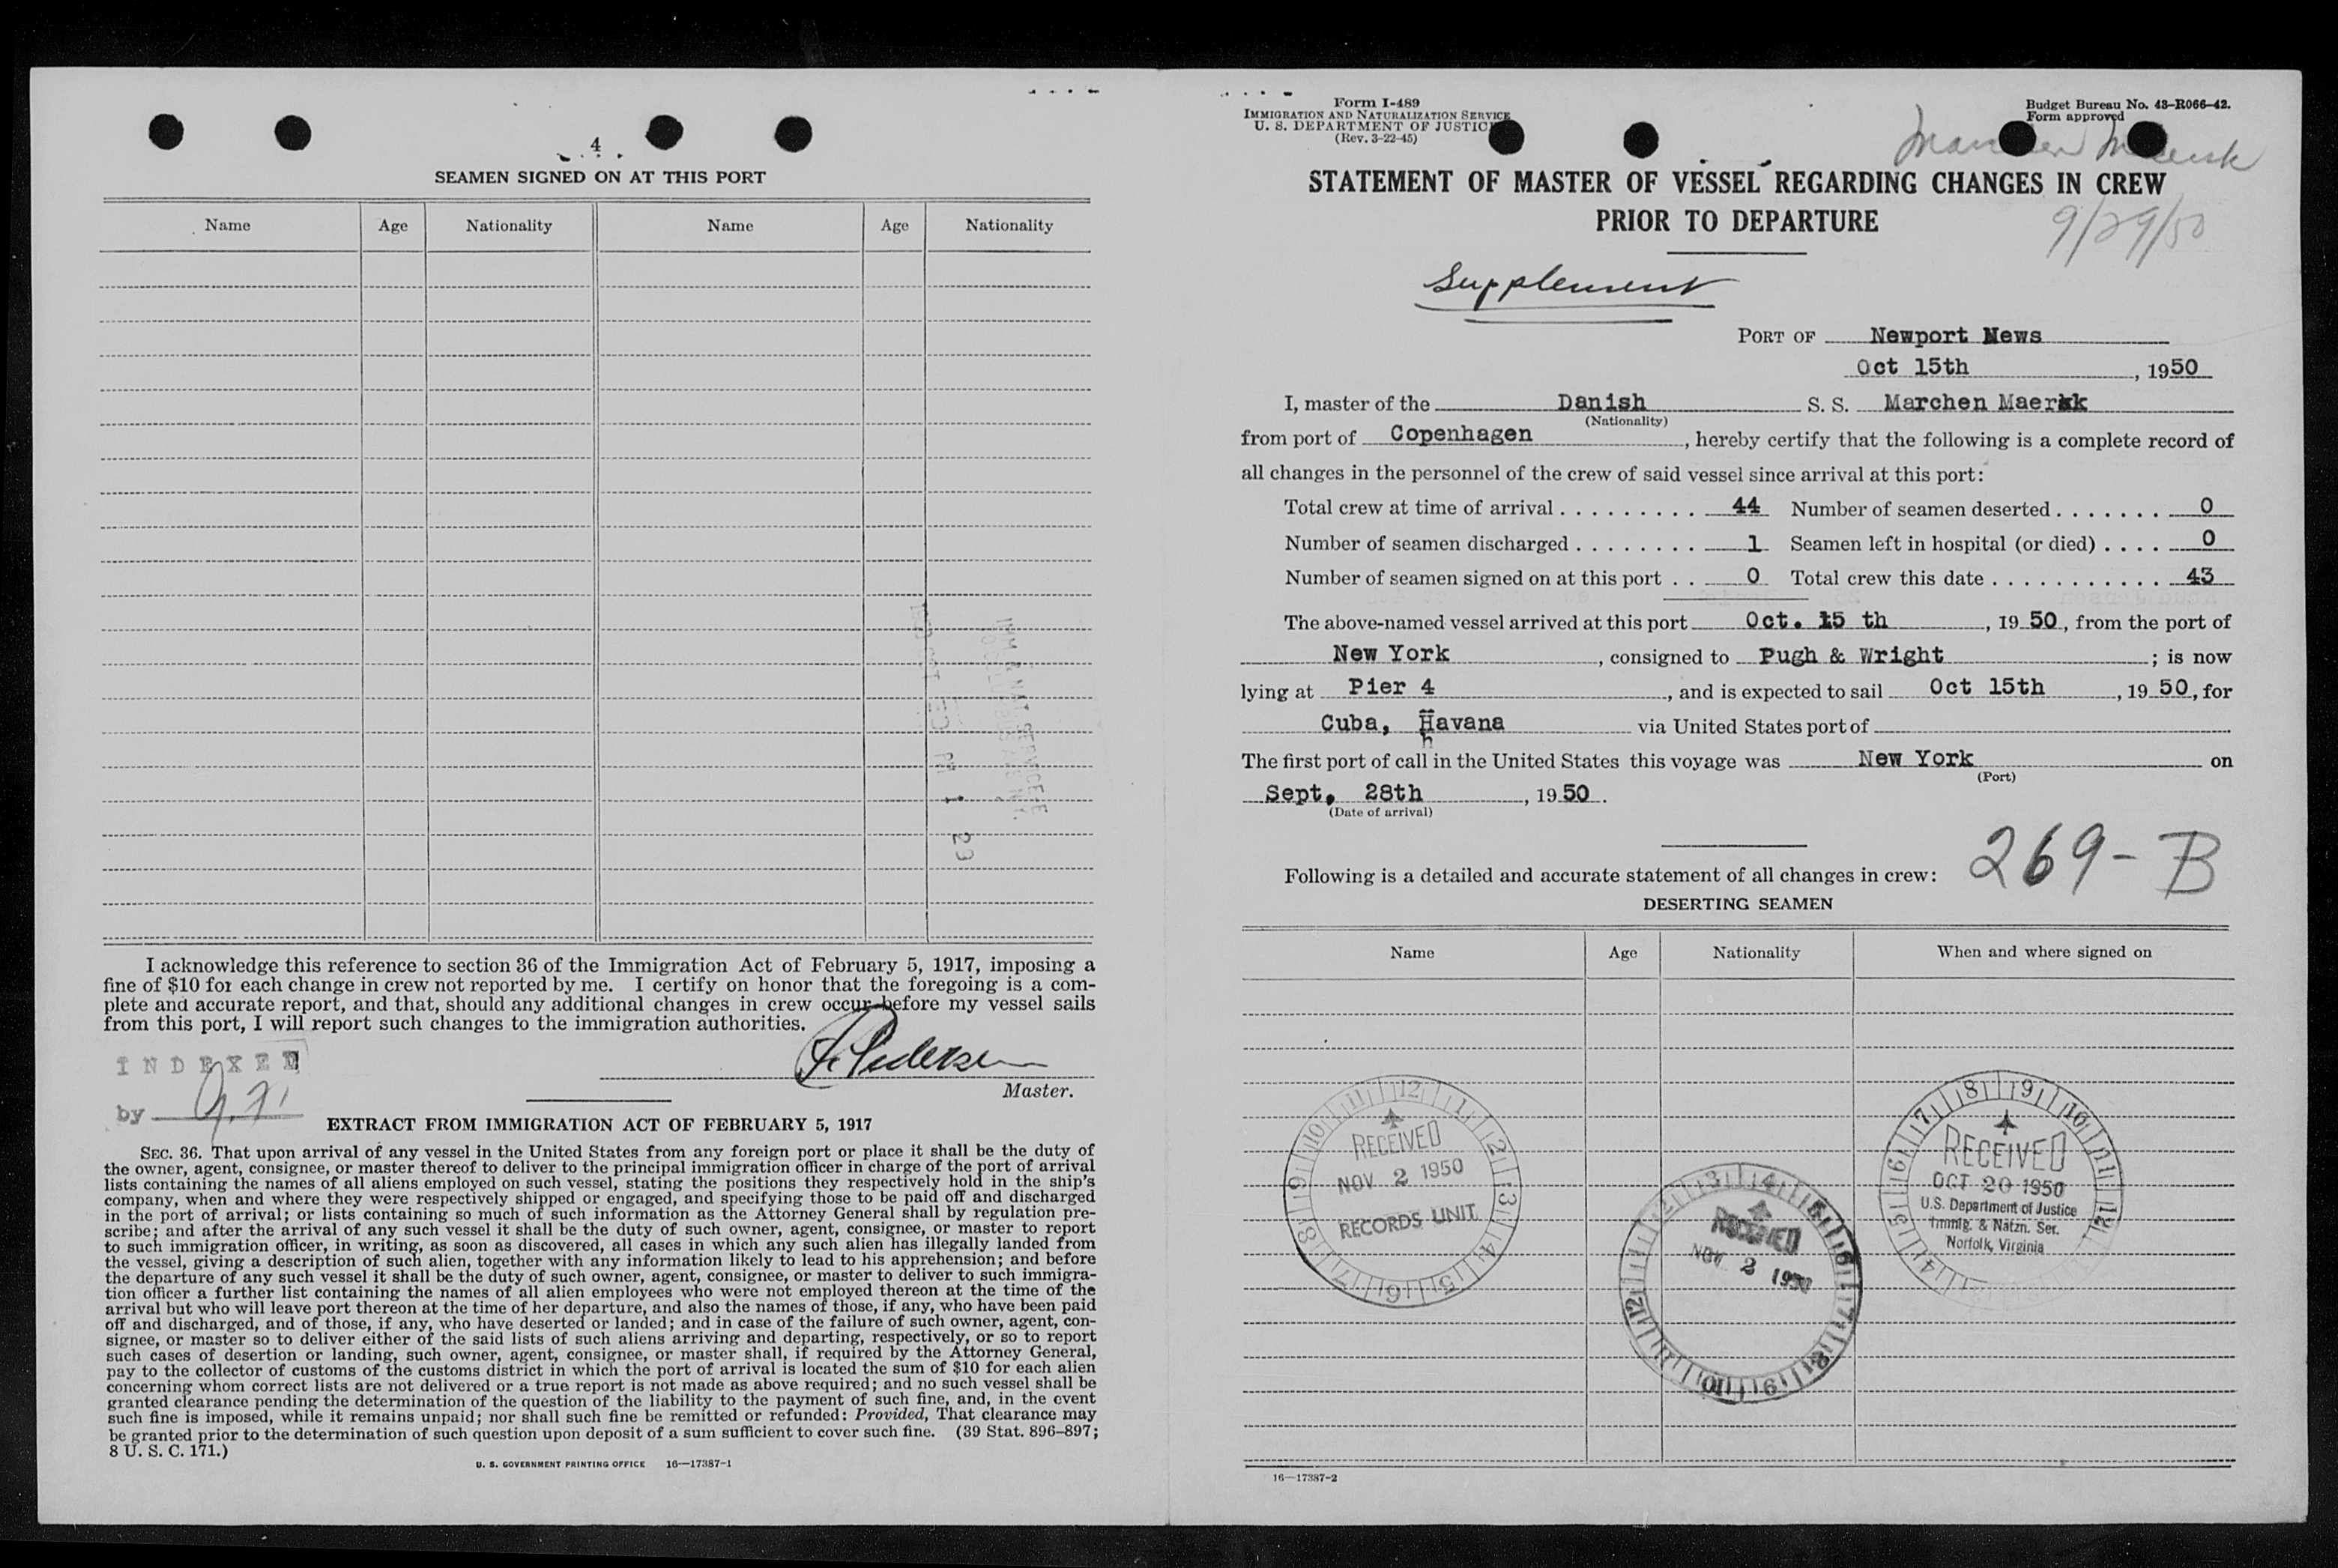 4
SEAMEN SIGNED ON AT THIS PORT
Name Age Nationality Name Age Nationality
I acknowledge this reference to section 36 of the Immigration Act of February 5, 1917, imposing a
fine of $10 for each change in crew not reported by me. I certify on honor that the foregoing is a com-
plete and accurate report, and that, should any additional changes in crew occur before my vessel sails
from this port, I will report such changes to the immigration authorities.
INDEXED
by
Pedersen
Master.
EXTRACT FROM IMMIGRATION ACT OF FEBRUARY 5, 1917
SEC. 36. That upon arrival of any vessel in the United States from any foreign port or place it shall be the duty of
the owner, agent, consignee, or master thereof to deliver to the principal immigration officer in charge of the port of arrival
lists containing the names of all aliens employed on such vessel, stating the positions they respectively hold in the ship's
company, when and where they were respectively shipped or engaged, and specifying those to be paid off and discharged
in the port of arrival; or lists containing so much of such information as the Attorney General shall by regulation pre-
scribe; and after the arrival of any such vessel it shall be the duty of such owner, agent, consignee, or master to report
to such immigration officer, in writing, as soon as discovered, all cases in which any such alien has illegally landed from
the vessel, giving a description of such alien, together with any information likely to lead to his apprehension; and before
the departure of any such vessel it shall be the duty of such owner, agent, consignee, or master to deliver to such immigra-
tion officer a further list containing the names of all alien employees who were not employed thereon at the time of the
arrival but who will leave port thereon at the time of her departure, and also the names of those, if any, who have been paid
off and discharged, and of those, if any, who have deserted or landed; and in case of the failure of such owner, agent, con-
signee, or master so to deliver either of the said lists of such aliens arriving and departing, respectively, or so to report
such cases of desertion or landing, such owner, agent, consignee, or master shall, if required by the Attorney General,
pay to the collector of customs of the customs district in which the port of arrival is located the sum of $10 for each alien
concerning whom correct lists are not delivered or a true report is not made as above required; and no such vessel shall be
granted clearance pending the determination of the question of the liability to the payment of such fine, and, in the event
such fine is imposed, while it remains unpaid; nor shall such fine be remitted or refunded: Provided, That clearance may
be granted prior to the determination of such question upon deposit of a sum sufficient to cover such fine. (39 Stat. 896–897;
8 U. S. C. 171.)
U. S. GOVERNMENT PRINTING OFFICE 16—17387-1
Form I-489
IMMIGRATION AND NATURALIZATION SERVICE
U. S. DEPARTMENT OF JUSTICE
(Rev. 3-22-45)
Budget Bureau No. 43-R066-42.
Form approved
STATEMENT OF MASTER OF VESSEL REGARDING CHANGES IN CREW
PRIOR TO DEPARTURE
9/29/50
Supplement
PORT OF Newport News
Oct 15th, 1950
I, master of the Danish S. S. Marchen Maersk
(Nationality)
from port of Copenhagen, hereby certify that the following is a complete record of
all changes in the personnel of the crew of said vessel since arrival at this port:
Total crew at time of arrival . . . . . . . . . 44 Number of seamen deserted . . . . . . . 0
Number of seamen discharged . . . . . . . . 1 Seamen left in hospital (or died) . . . . 0
Number of seamen signed on at this port . . 0 Total crew this date . . . . . . . . . . . 43
The above-named vessel arrived at this port Oct. 15 th, 19 50, from the port of
New York, consigned to Pugh & Wright; is now
lying at Pier 4, and is expected to sail Oct 15th, 19 50, for
Cuba, Havana via United States port of
h
The first port of call in the United States this voyage was New York on
(Port)
Sept. 28th, 19 50.
(Date of arrival)
269-B
Following is a detailed and accurate statement of all changes in crew:
DESERTING SEAMEN
Name Age Nationality When and where signed on
RECEIVED
NOV 2 1950
RECORDS UNIT
RECEIVED
NOV 2 1950
RECEIVED
OCT 20 1950
U.S. Department of Justice
Immig. & Natzn. Ser.
Norfolk, Virginia
16—17387-2